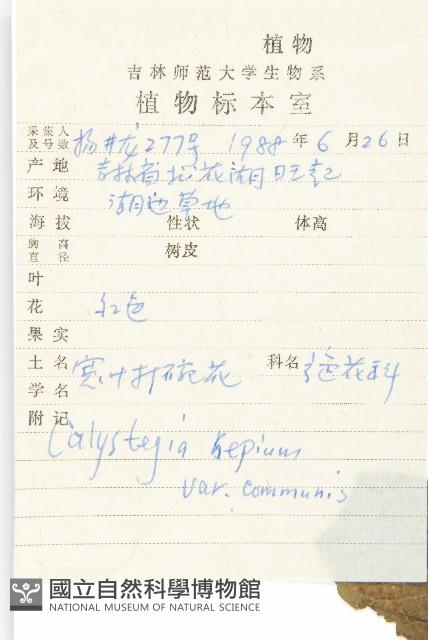 植物
吉林师范大学生物系
植物标本室
采集人及号数 杨井龙277号 1988年6月26日
产地 吉林省松花湖
环境 湖边草地
海拔 性状 体高
胸高直径 树皮
叶
花 红色
果实
土名 宽叶打碗花 科名 旋花科
学名
附记
Calystegia sepium
var. communis
國立自然科學博物館
NATIONAL MUSEUM OF NATURAL SCIENCE